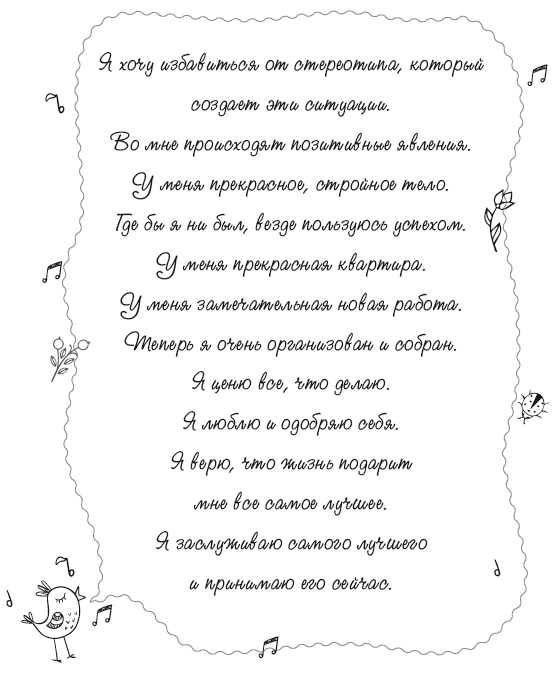 Я хочу избавиться от стереотипа, который
создает эти ситуации.
Во мне происходят позитивные явления.
У меня прекрасное, стройное тело.
Где бы я ни был, везде пользуюсь успехом.
У меня прекрасная квартира.
У меня замечательная новая работа.
Теперь я очень организован и собран.
Я ценю все, что делаю.
Я люблю и одобряю себя.
Я верю, что жизнь подарит
мне все самое лучшее.
Я заслуживаю самого лучшего
и принимаю его сейчас.